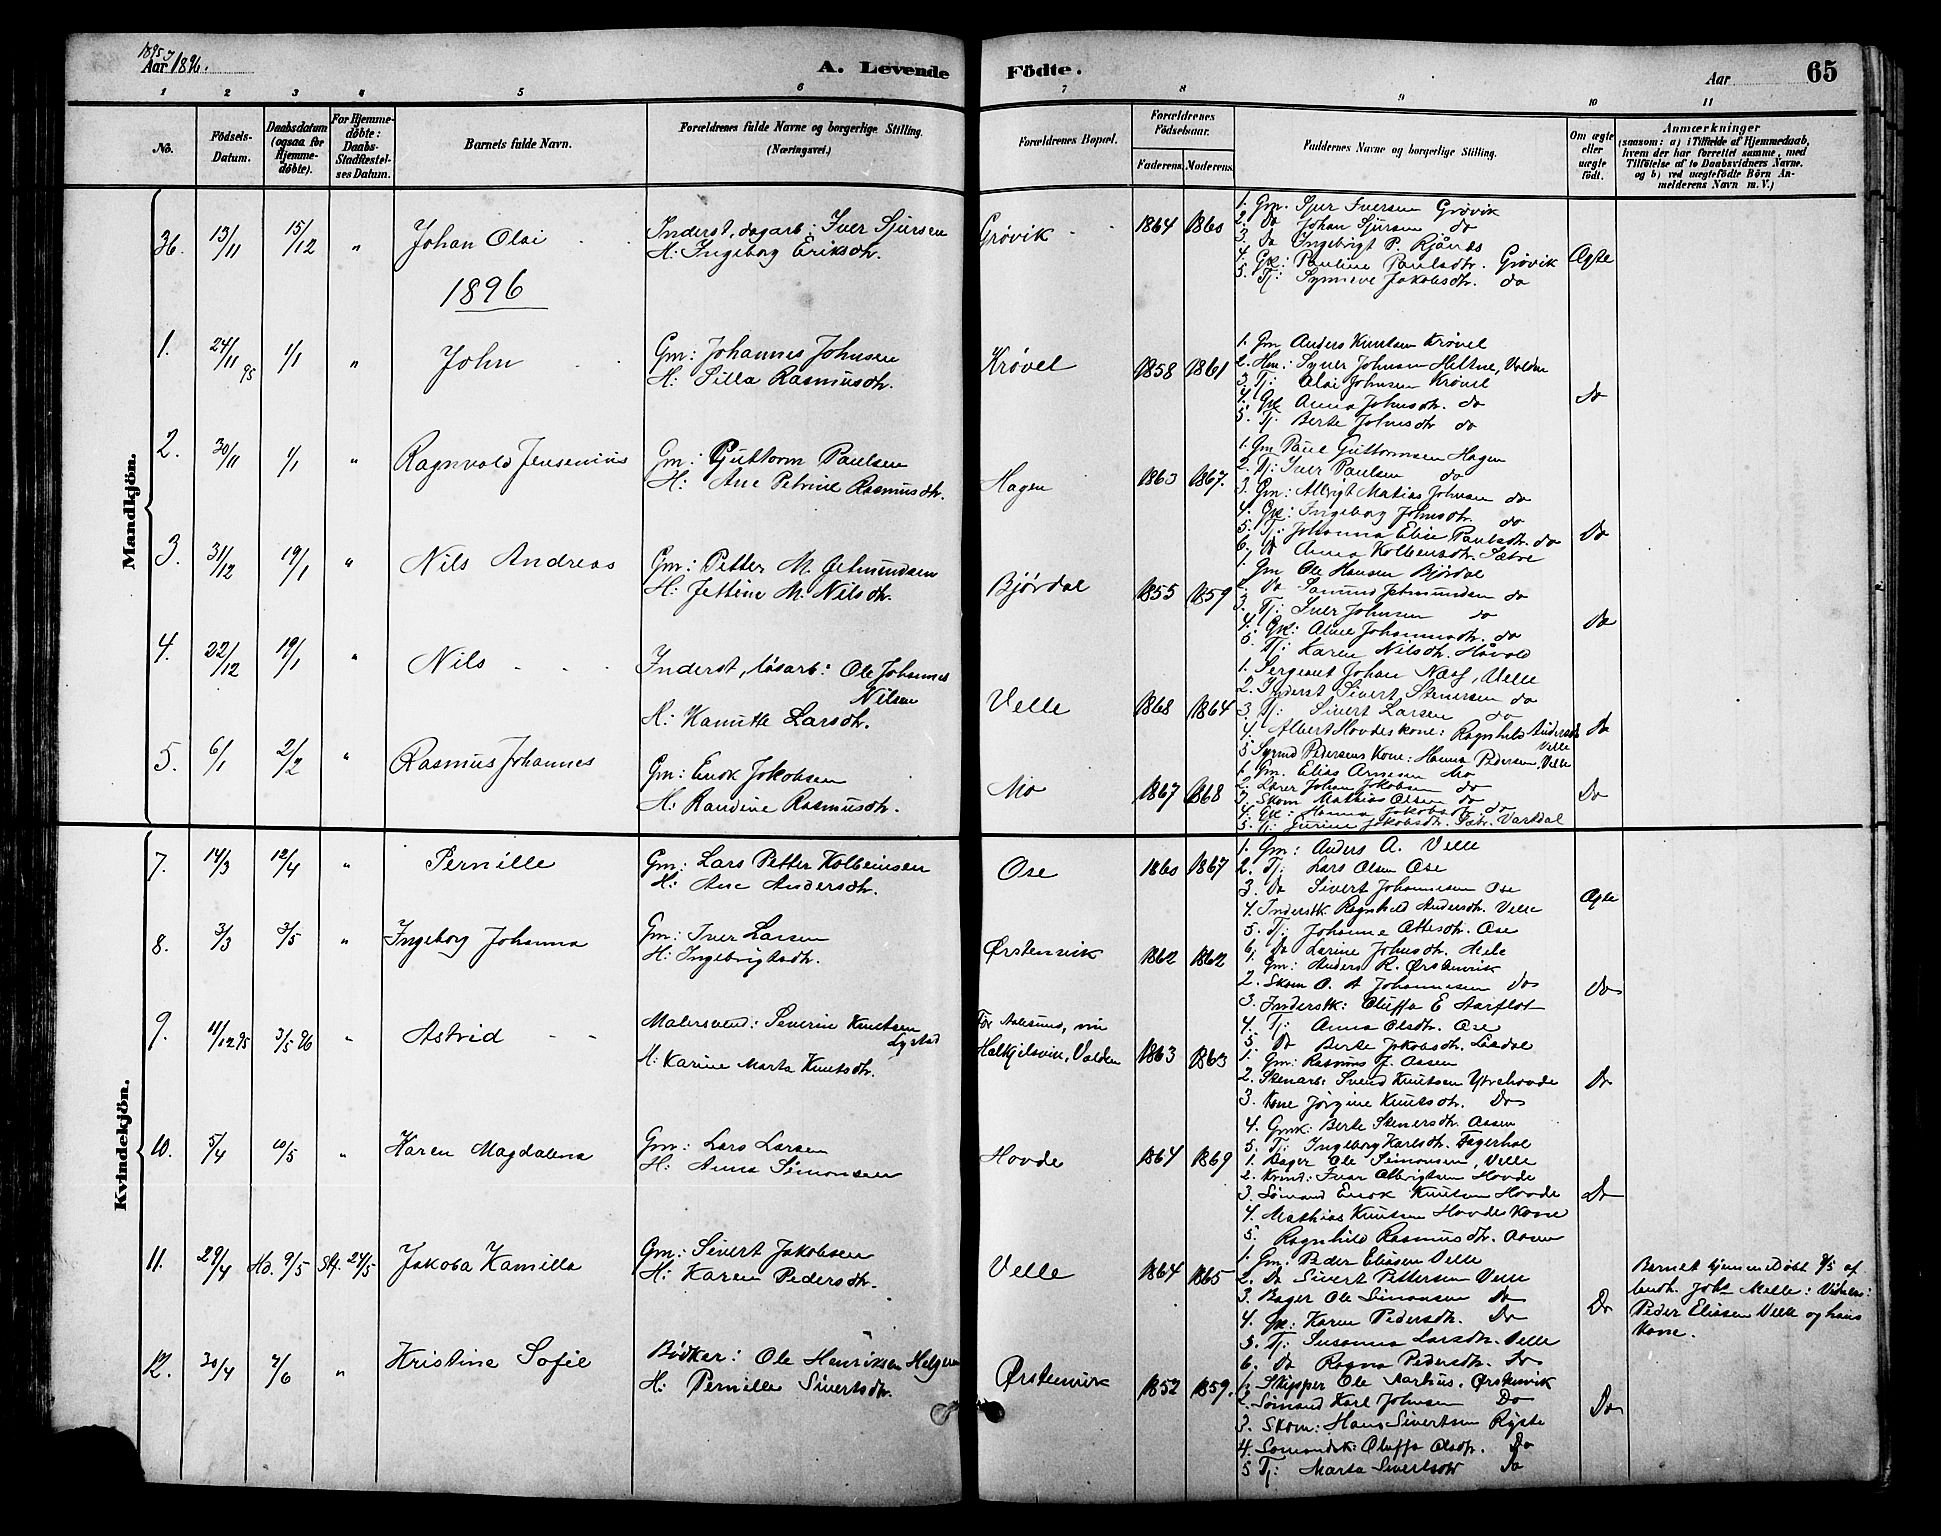 1895 &
Aar 1896.
A. Levende
Födte.
Aar
65
1
2
3
4
5
6
7
8
9
10
11
No.
Födsels-
Datum.
Daabsdatum
(ogsaa for
Hjemme-
döbte).
For Hjemme-
döbte:
Daabs-
Stadfæstel-
ses Datum.
Barnets fulde Navn.
Forældrenes fulde Navne og borgerlige Stilling.
(Næringsvei.)
Forældrenes Bopæl.
Forældrenes
Födselsaar.
Faderens.
Moderens.
Faddernes Navne og borgerlige Stilling.
Om ægte
eller
uægte
födt.
Anmærkninger
(saasom: a) i Tilfælde af Hjemmedaab,
hvem der har forrettet samme, med
Tilföielse af to Daabsvidners Navne.
og b) ved uægtefödte Börn An-
melderens Navn m. V.)
Mandkjön.
36. 13/11 15/12 " Johan Olai
Inderst, dagarb: Iver Sjursen
H: Ingeborg Eriksdtr.
Grøvik 1864 1860
1. Gm. Sjur Iversen Grøvik
2. Do Johan Sjursen do
3. Do Ingebrigt P. Rjånes
4. Gk: Pauline Paulsdtr. Grøvik
5. Tj: Synneve Jakobsdtr. do
Ægte
1896
1. 24/11 95 1/1 " John
Gm: Johannes Johnsen
H: Silla Rasmusdtr.
Krøvel 1858 1861
1. Gm Anders Knutsen Krøvel
2. Hm: Syver Johnsen Heltne, Volden
3. Tj: Olai Johnsen Krøvel
4. Gk Anna Johnsdtr. do
5. Tj: Berte Johnsdtr do
Do
2. 30/11 1/1 " Ragnvald Jensenius
Gm: Guttorm Paulsen
H: Ane Petrine Rasmusdtr.
Hagen 1863 1867.
1. Gm Paul Guttormsen Hagen
2. Tj: Iver Paulsen do
3. Gm: Albrigt Matias Johnsen do
4. Gk: Ingeborg Johnsdtr. do
5. Tj: Johanna Eline Paulsdtr. do
6. Do Anna Kolbensdtr. Sætre
Do
3. 31/12 19/1 " Nils Andreas
Gm: Petter M. Getmundsen
H: Jettine M. Nilsdtr.
Bjørdal 1855 1859
1. Gm Ole Hansen Bjørdal
2. Do Samund Jetmundsen do
3. Tj: Iver Johnsen do
4. Gk: Aline Johannesdtr. do
5. Tj: Karen Nilsdtr. Håvold
Do
4. 22/12 19/1 " Nils
Inderst, løsarb: Ole Johannes
Nilsen
H: Kanutte Larsdtr.
Velle 1868 1864
1. Sergeant Johan Næss, Velle
2. Inderst Sivert Stenersen do
3. Tj: Sivert Larsen do
4. Albert Hovdes kone: Ragnhild Andersdtr
Velle
5. Syvert Pedersens Kone: Hanna Pedersen, Velle
Do
5. 6/1 2/2 " Rasmus Johannes
Gm: Enok Jakobsen
H: Randine Rasmusdtr.
Mo 1867 1868
1. Gm. Elias Arnesen Mo
2. Lærer Johan Jakobsen do
3. Skom Mathias Olsen do
4. Gk: Hanna Jakobsdtr do
5. Tj: Jurine Jakobsdtr. Sætr. Vartdal
Do
Kvindekjön.
7. 14/3 12/4 " Pernille
Gm: Lars Petter Kolbeinsen
H: Ane Andersdtr.
Ose 1860 1867
1. Gm: Anders A. Velle
2. Tj: Lars Olsen Ose
3. Do Sivert Johannesen Ose
4. Inderstk Ragnhild Andersdtr. Velle
5. Tj: Johanne Ottesdtr. Ose
6. Do Larine Johnsdtr. Mele
Ægte
8. 3/3 3/5 " Ingeborg Johanna
Gm: Iver Larsen
H: Ingebrigtsdtr.
Ørstenvik 1862 1862
1. Gm: Anders R. Ørstenvik
2. Skom O. A Johannesen Do
3. Inderstk: Oluffa E Aarflot
4. Tj: Anna Olsdtr. Ose
5. Do Berte Jakobsdtr. Liadal
Do
9. 11/12 95 3/5 96 " Astrid
Malersvend: Severin Knutsen
Lystad
H: Karine Marta Knutsdtr.
Før Aalesund, nu
Halkjelsvik, Volden 1863 1863
1. Gm: Rasmus J. Aasen
2. Stenarb: Svend Knutsen Ytrehovde
3. Kone Jørgine Knutsdtr. Do
4. Gmk: Berte Stenersdtr. Aasen
5. Tj: Ingeborg Karlsdtr. Fagerhol
Do
10. 5/4 10/5 " Karen Magdalena
Gm: Lars Larsen
H: Anna Simonsen
Hovde 1864 1869
1. Bager Ole Simonsen, Velle
2. Ivar Albrigtsen Hovde
3. Sømand Enok Knutsen Hovde
4. Mathias Knutsen Hovdes Kone
5. Ragnhild Rasmusdtr. Aasen
Do
11. 29/4 Hd. 9/5 Stf. 24/5 Jakoba Kamilla
Gm: Sivert Jakobsen
H: Karen Pedersdtr.
Velle 1864 1865
1. Gm: Peder Eliasen Velle
2. Do Sivert Pettersen Velle
3. Bager Ole Simonsen Do
4. Gk: Karen Pedersdtr. Do
5. Tj: Susanna Larsdtr. Velle
6. Do Ragna Pedersdtr. Do
Do
Barnet hjemmedøbt 9/5 af
Joh. Melle: Vidner:
Peder Eliasen Velle og hans
Kone.
12. 30/4 7/6 " Kristine Sofie
Bødker: Ole Henriksen Helgesen
H: Pernille Sivertsdtr.
Ørstenvik 1852 1859.
1. Skipper Ole Aarhus, Ørstenvik
2. Sømand Karl Johnsen Do
3. Skom: Hans Sivertsen Rÿste
4. Sømandsk: Oluffa Olsdtr. Do
5 Tj: Marta Sivertsdtr Do
Do